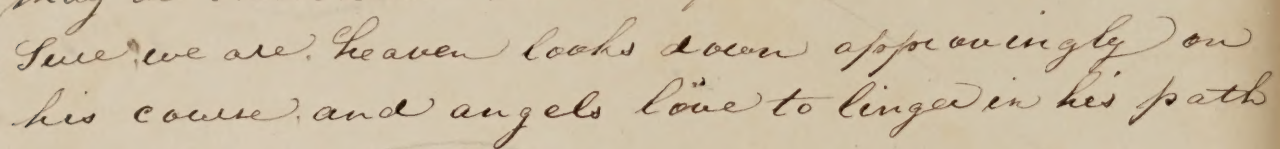 Sure we are heaven looks down approvingly on
his course and angels love to linger in his path